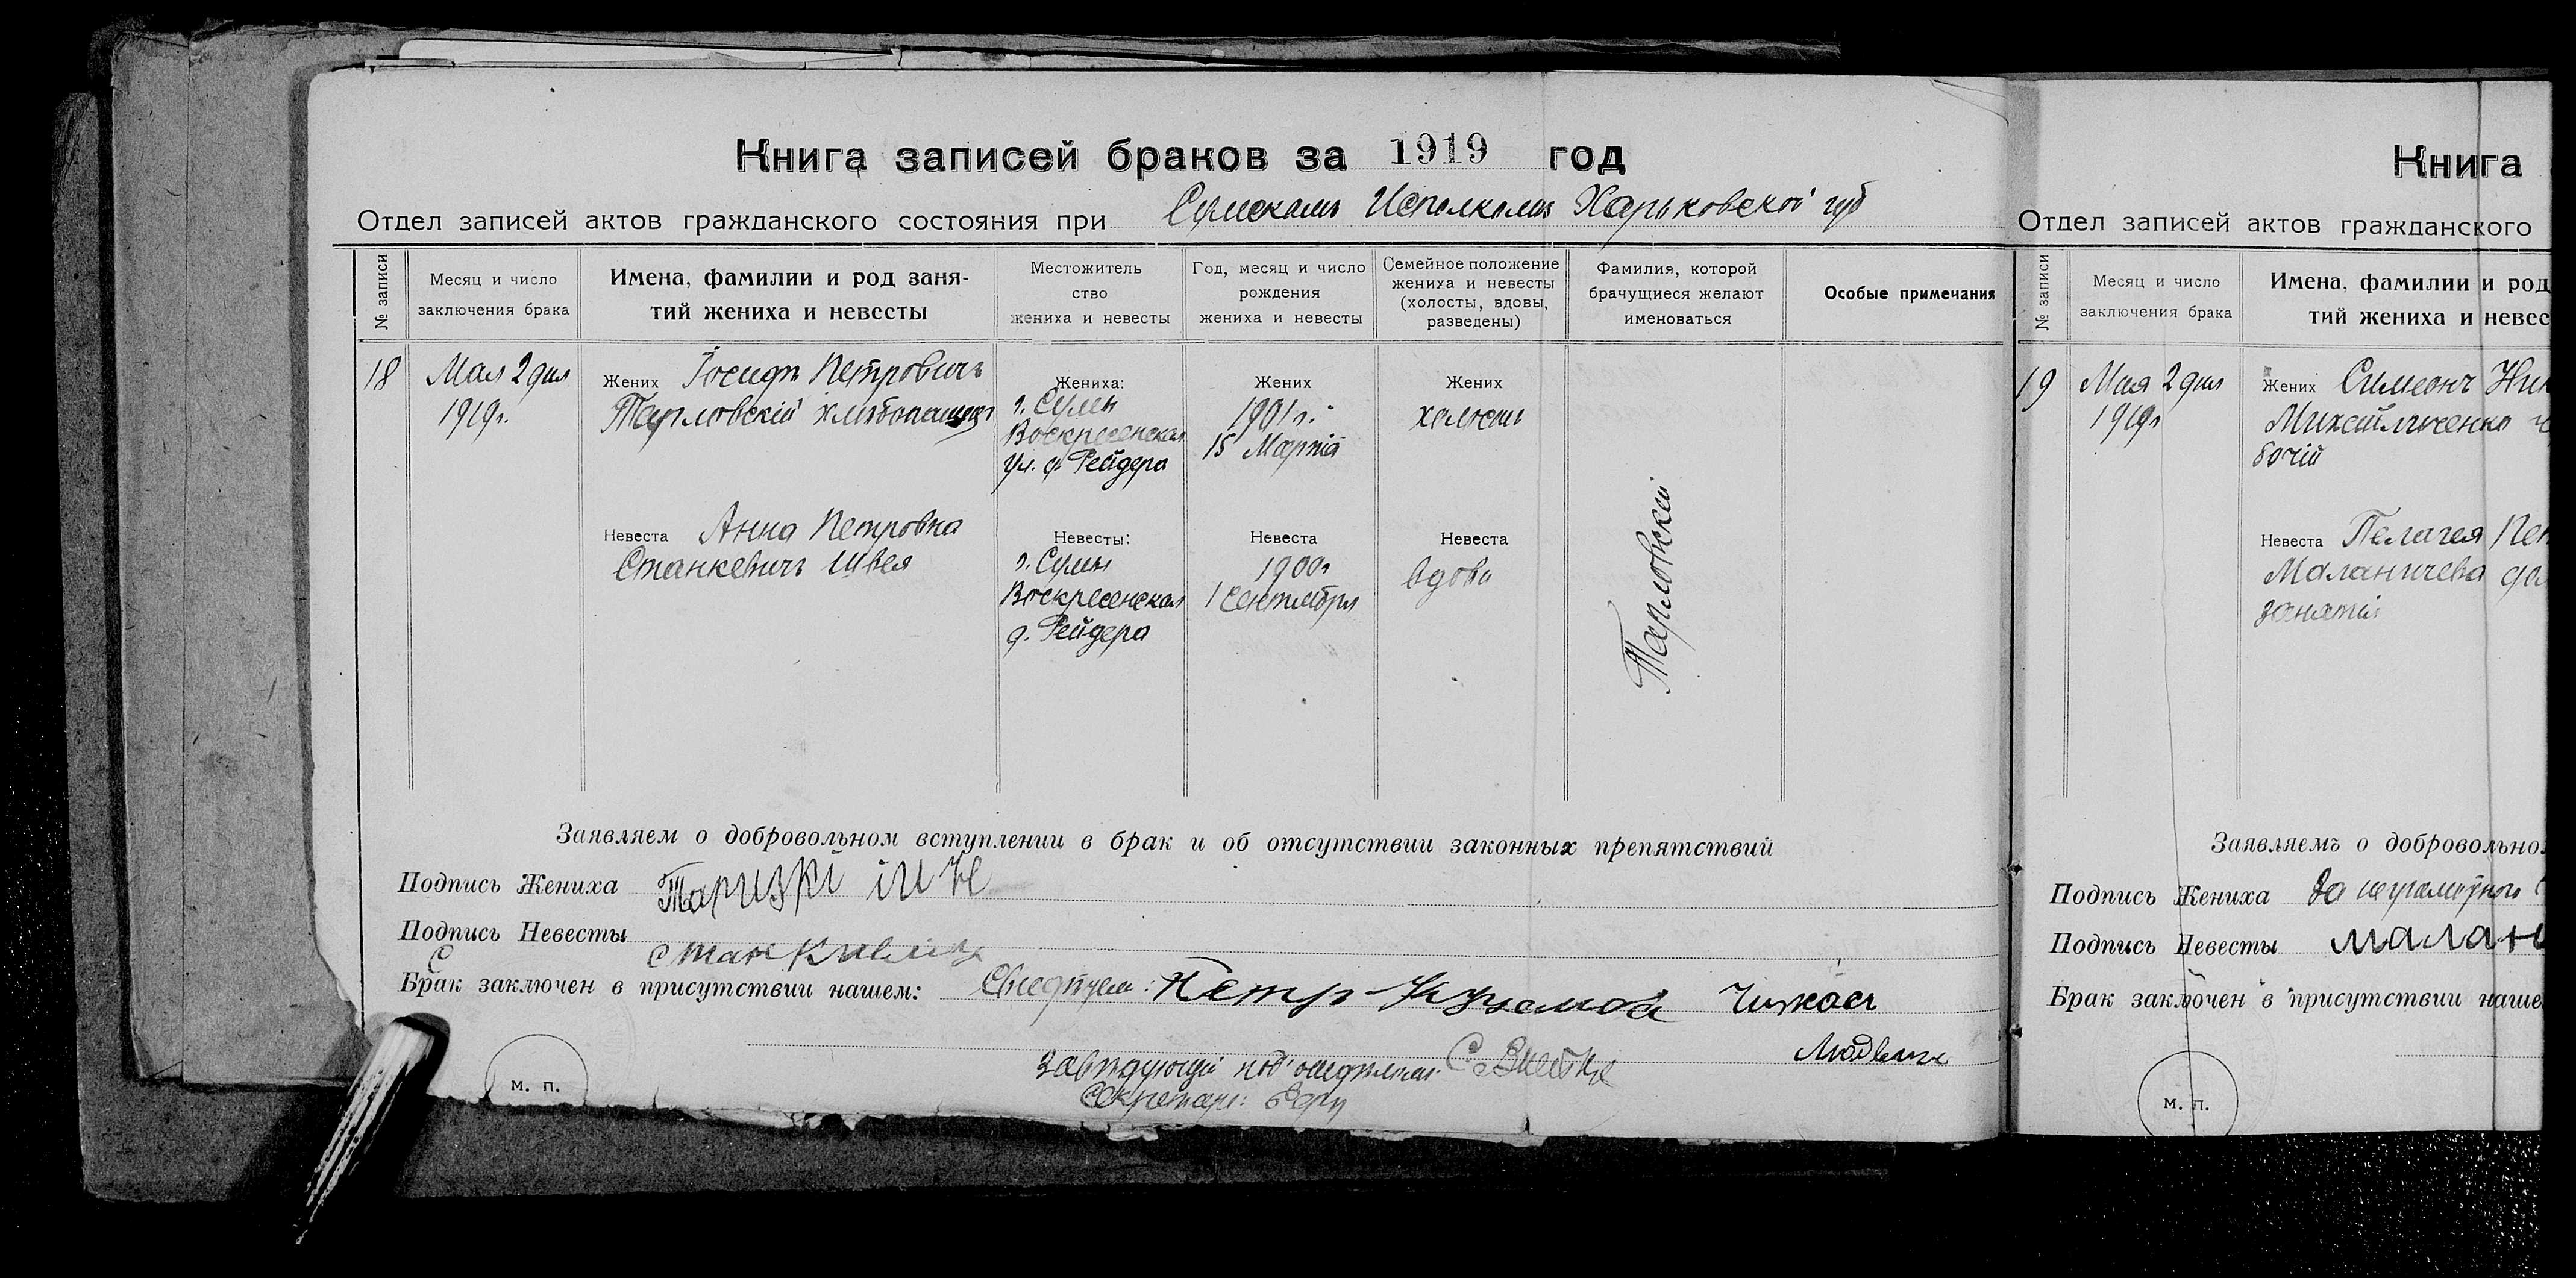 Книга записей браков за 1919 год
Отдел записей актов гражданского состояния при Сумскомъ Исполкомъ Харьковской губ
№ записи
Месяц и число
заключения брака
Имена, фамилии и род заня-
тий жениха и невесты
Местожитель
ство
жениха и невесты
Год, месяц и число
рождения
жениха и невесты
Семейное положение
жениха и невесты
(холосты, вдовы,
разведены)
Фамилия, которой
брачущиеся желают
именоваться
Особые примечания
18
Мая 2 дня
1919г.
Жених Іосифъ Петровичъ
Тарловскій хлѣбопашецъ
Жениха:
г. Сумы
Воскресенская
ул. д. Рейдера
Жених
1901 г.
15 Марта
Жених
холостъ
Невеста Анна Петровна
Станкевичъ Швея
Невесты:
г. Сумы
Воскресенская
д. Рейдера
Невеста
1900г
1 Сентября
Невеста
вдова
Тарловскій
Заявляем о добровольном вступлении в брак и об отсутствии законных препятствий
Подпись Жениха
Подпись Невесты
Брак заключен в присутствии нашем: Петр
Завѣдующій под отдѣломъ
Секретарь:
м. п.
Книга
Отдел записей актов гражданского
№ записи
Месяц и число
заключения брака
Имена, фамилии и род
тий жениха и невес
19
Мая 2 дня
1919г
Жених Симеонъ Ник
Михайличенко
бочій
Невеста Пелагея Пет
Маланичева
занятія
Заявляемъ о добровольно
Подпись Жениха за неграмотного
Подпись Невесты малан
Брак заключен в присутствии наше
м. п.